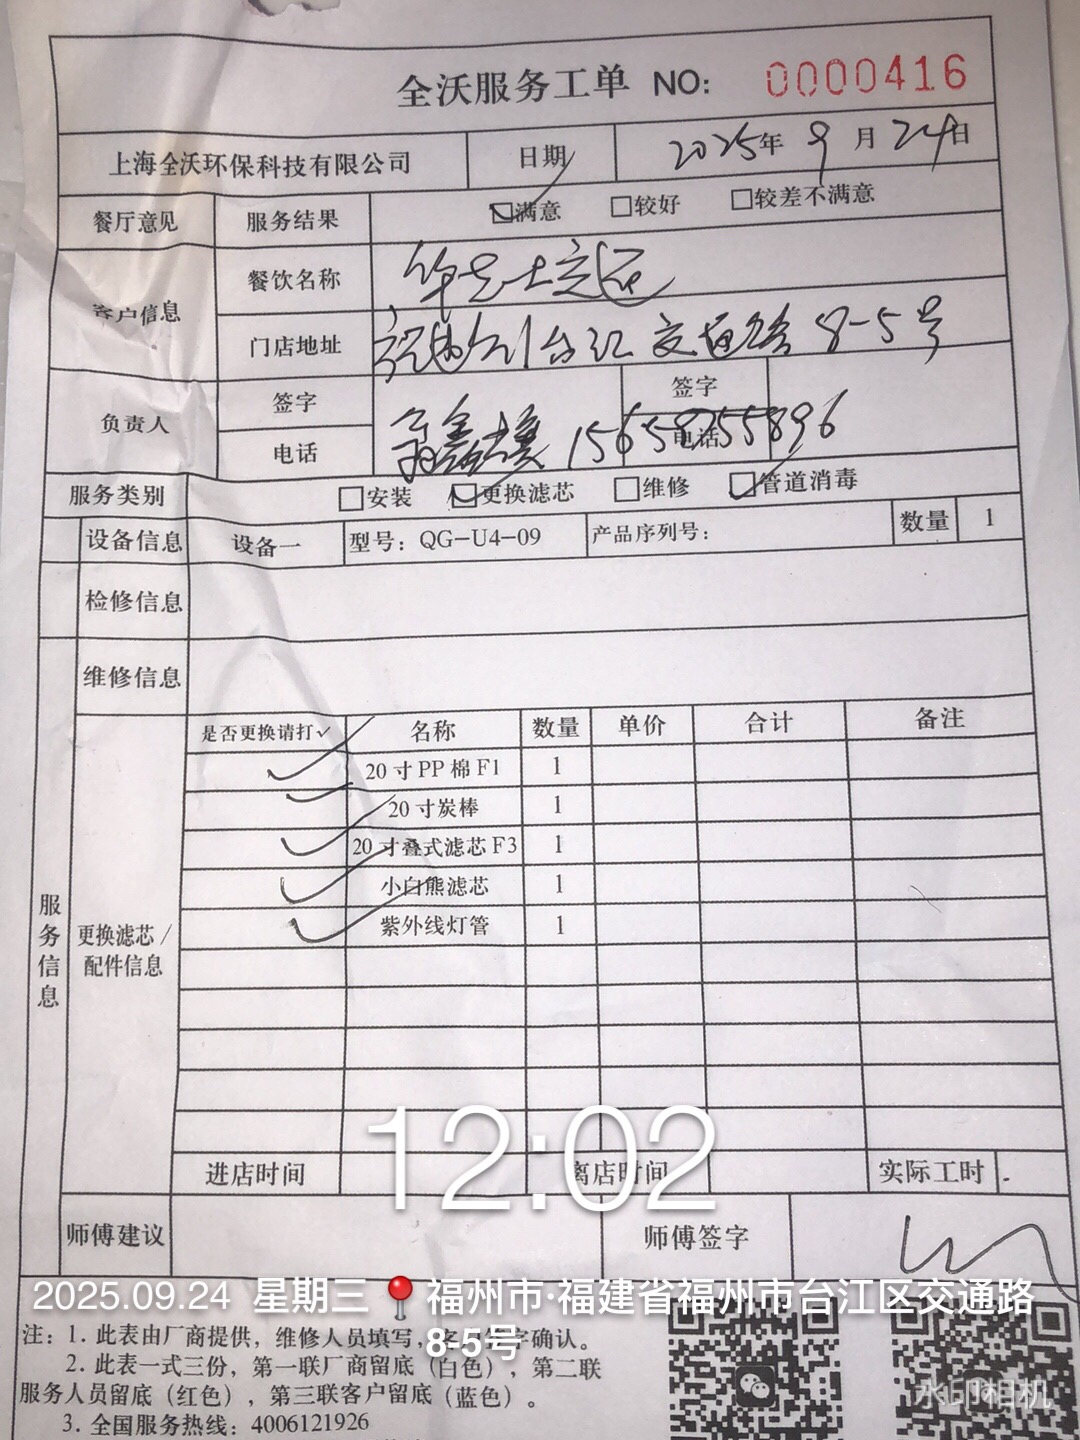 全沃服务工单 NO: 0000416
上海全沃环保科技有限公司 日期 2025年 9月 24日
餐厅意见 服务结果 ☑满意 □较好 □较差不满意
客户信息 餐饮名称 华士交远
门店地址 福州台江交通路8-5号
负责人 签字 签字
电话 15659755896 电话
服务类别 □安装 ☑更换滤芯 □维修 ☑管道消毒
设备信息 设备一 型号：QG-U4-09 产品序列号： 数量 1
检修信息
维修信息
服务信息
更换滤芯/配件信息
是否更换请打✓ 名称 数量 单价 合计 备注
✓ 20寸PP棉F1 1
✓ 20寸炭棒 1
✓ 20寸叠式滤芯F3 1
✓ 小白熊滤芯 1
✓ 紫外线灯管 1
12:02
进店时间 离店时间 实际工时
师傅建议 师傅签字
2025.09.24 星期三 福州市·福建省福州市台江区交通路
8-5号
注：1. 此表由厂商提供，维修人员填写，字确认。
2. 此表一式三份，第一联厂商留底（白色），第二联
服务人员留底（红色），第三联客户留底（蓝色）。
3. 全国服务热线：4006121926
水印相机